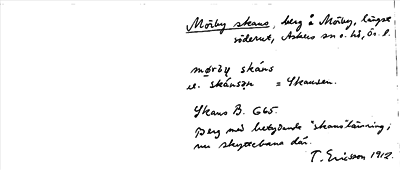 Mörby skans, berg å Mörby, längst
söderut, Askers sn o. hd, Ör. l.
mørby skáns
el. skánsən = Skansen.
Skans B. G65.
Berg med betydande "skans"lämning;
nu skyttebana där.
T. Ericsson 1912.